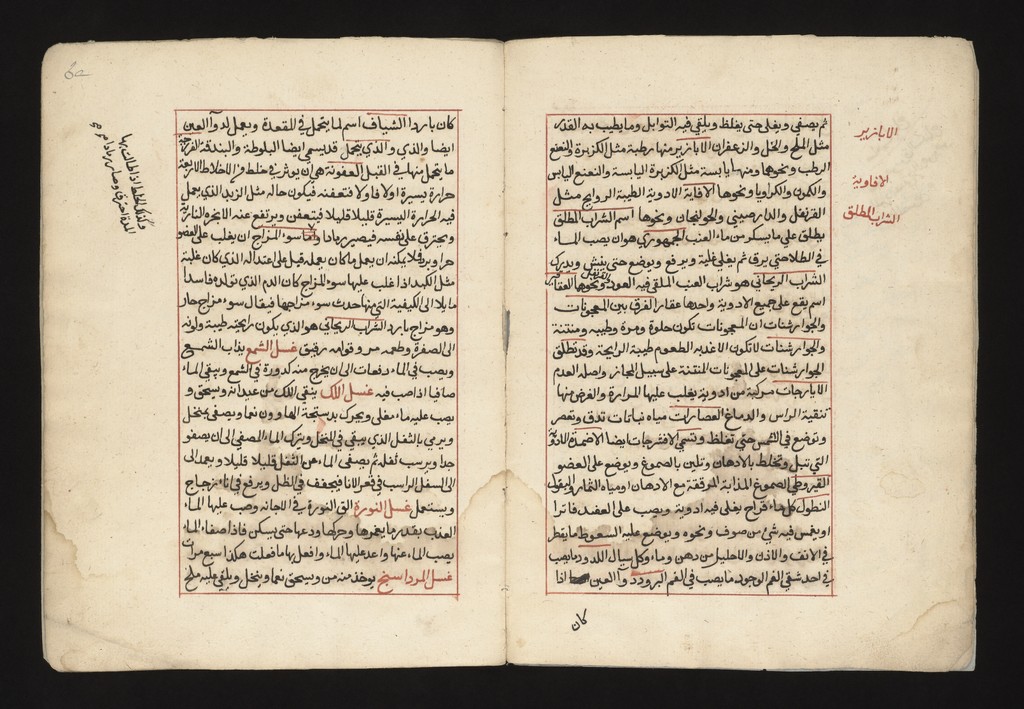 ثم يصفى ويغلى حتى يغلظ ويلقى فيه التوابل وما يطيب به القدر
مثل الملح والخل والزعفران الابازير منها رطبة مثل الكزبرة والنعنع
الرطب ونحوها ومنها يابسة مثل الكزبرة اليابسة والنعنع اليابس
والكمون والكراويا ونحوها الافاوية الادوية الطيبة الروايح مثل
القرنفل والدارصيني والخولنجان ونحوها اسم الشراب المطلق
يطلق على ما يسكر من ماء العنب الجمهوري هو ان يصب الماء
في الطلا حتى يرق ثم يغلى غلية ويرفع ويوضع حتى ينش ويدرك
الشراب الريحاني هو شراب العنب الملقى فيه العود والقرنفل ونحوها العقار
اسم يقع على جميع الادوية واحدها عقار الفرق بين المعجونات
والجوارشنات ان المعجونات تكون حلوة ومرة وطيبه ومنتنة
والجوارشنات لا تكون الا عذبه الطعوم طيبة الرايحة وقد تطلق
الجوارشنات على المعجونات المنتنة على سبيل المجاز واصله العدم
الايارجات مركبة من ادوية يغلب عليها المرارة والغرض منها
تنقية الراس والدماغ العصارات مياه نباتات تدق وتعصر
وتوضع في الشمس حتى تغلظ وتسمى الاقشرجات ايضا الاضمدة الادوية
التي تبل وتخلط بالادهان وتلين بالصموغ ويوضع على العضو
القيروطي الصموغ المذابة المرققة مع الادهان او مياه الثمار والبقول
النطول كل ماء قراح يغلى فيه ادوية ويصب على العضو فاترا
او يغمس فيه شئ من صوف ونحوه ويوضع عليه السعوط ما يقطر
في الانف والاذن والاحليل من دهن وماء وكل سيال اللدود ما يصب
في احد شقي الفم الوجور ما يصب في الفم البرود دوآ العين اذا
الابازير
الافاوية
الشراب المطلق
كان
كان باردا الشياف اسم لما يتحمل في المقعدة ويعمل لدوآ العين
ايضا والذي يتحمل قد يسمى ايضا البلوطة والبندقة الفرزجة
ما يتحمل منها في القبل العفونة هي ان يوثر في خلط من الاخلاط الاربعة
حرارة يسيرة اولا فاولا فتعفنه فيكون حاله مثل الزبل الذي يعمل
فيه الحرارة اليسيرة قليلا قليلا فيتعفن ويرتفع عنه الابخرة النارية
ويحترق على نفسه فيصير رمادا واما سوء المزاج ان يغلب على العضو
حر او برد فلا يمكنه ان يعمل ما كان يعمله قبل على اعتداله الذي كان عليه
مثل الكبد اذا غلب عليها سوء المزاج كان الدم الذي تولده فاسدا
مايلا الى الكيفية التي منها حدث سوء مزاجها فيقال سوء مزاج حار
وهو مزاج بارد الشراب الريحاني هو الذي يكون رايحته طيبة ولونه
الى الصفرة وطعمه مر وقوامه رقيق غسل الشمع يذاب الشمع
ويصب في الماء دفعات الى ان يخرج منه كدورة في الشمع ويبقى الماء
صافيا اذا صب فيه غسل اللك ينقى اللك من عيدانه ويسحق و
يصب عليه ماء مغلى ويحرك بدستجة الهاوون نعما ويصفى بمنخل
ويرمى بالثفل الذي يبقى في المنخل ويترك الماء المصفى الى ان يصفو
جدا ويرسب اسفله ثم يصفى الماء عن الثفل قليلا قليلا ويعمد الى
الى السفل الراسب في قعر الانا فيجفف في الظل ويرفع في اناء زجاج
ويستعمل غسل النورة الق النورة في الاجانه وصب عليها الماء
العذب بقدر ما يغمرها وحركها ودعها حتى يسكن فاذا صفا الماء
يصب الماء عنها واعد عليها الماء وافعل بها ما فعلت هكذا سبع مرات
غسل المرداسنج يوخذ منه من ويسحق نعما وينخل ويلقى عليه ملح
وكذلك الخلط اذا طالت بها